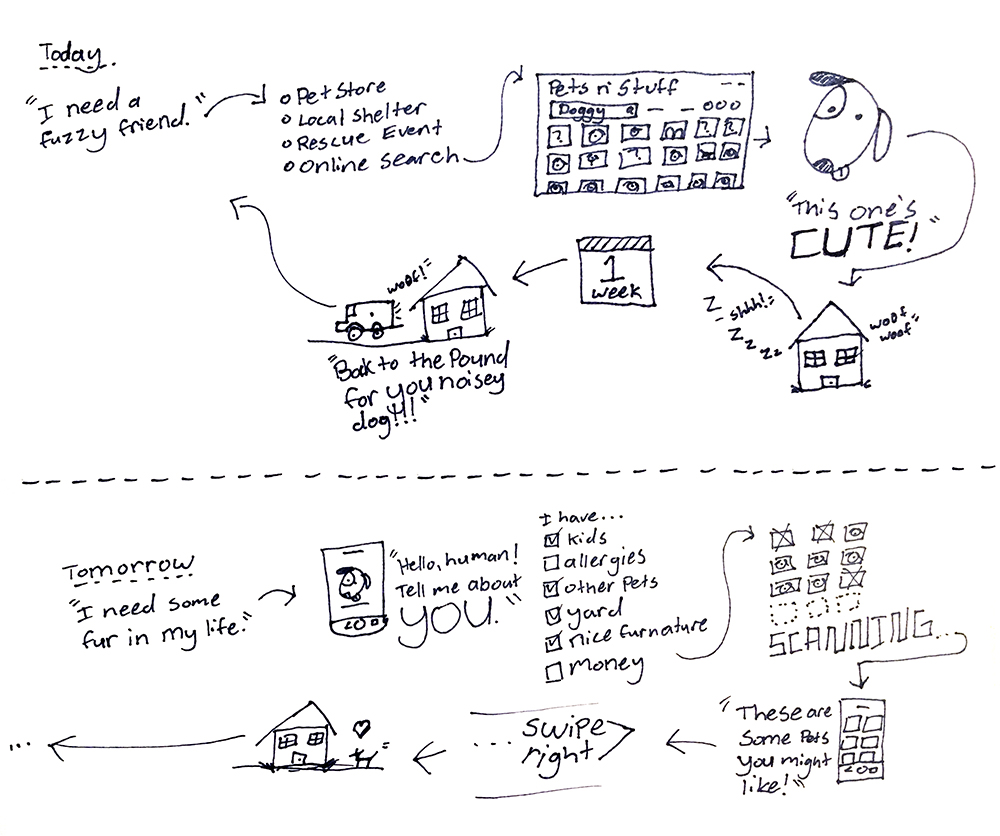 Today.
"I need a
fuzzy friend."
Pet Store
Local Shelter
Rescue Event
Online search
Pets n' Stuff
Doggy
? ? ?
?
"This one's
CUTE!"
woof
woof"
z
-shhh!=
z
z
zz
1
week
woof!=
"Back to the Pound
for you noisey
dog!!!"
Tomorrow
"I need some
fur in my life."
"Hello, human!
Tell me about
YOU."
I have...
kids
allergies
other Pets
yard
nice furnature
money
SCANNING...
"These are
Some Pets
you might
like!"
... swipe
right
...